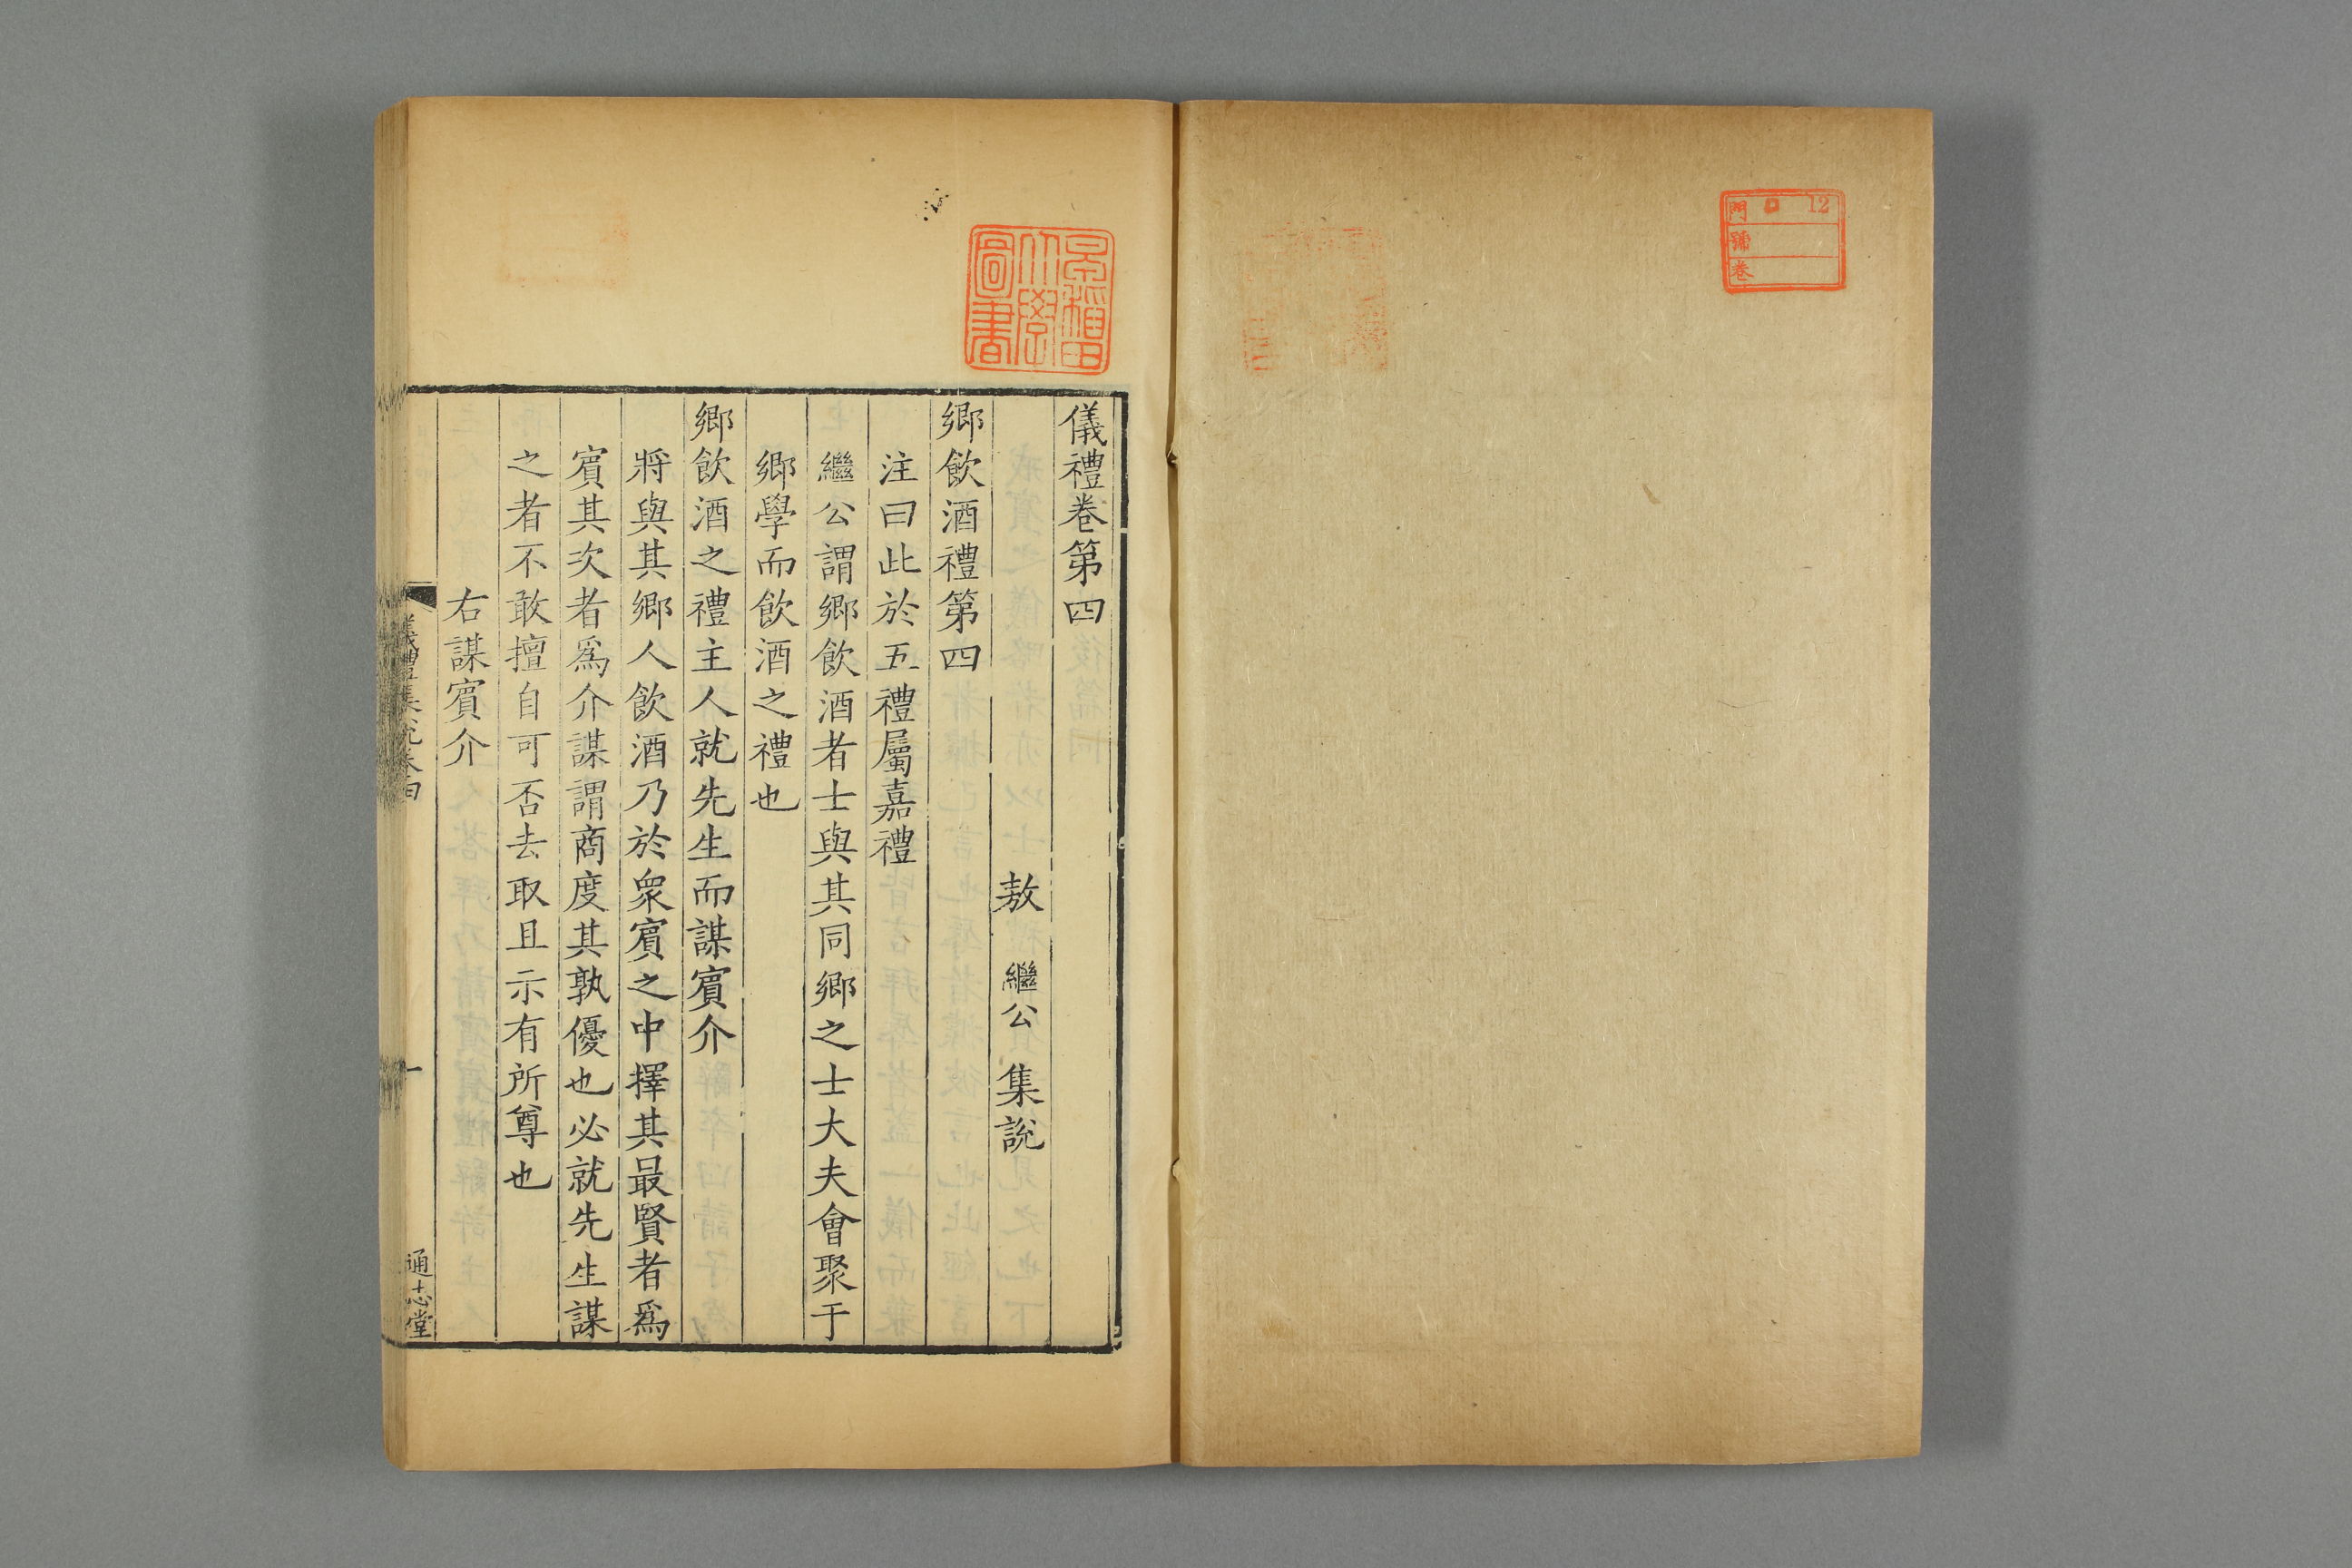 門 12
號
卷
早稲田
大學
圖書
儀禮卷第四
敖 繼公 集說
鄉飲酒禮第四
注曰此於五禮屬嘉禮
繼公謂鄉飲酒者士與其同鄉之士大夫會聚于
鄉學而飲酒之禮也
鄉飲酒之禮主人就先生而謀賔介
將與其鄉人飲酒乃於衆賔之中擇其最賢者爲
賔其次者爲介謀謂商度其孰優也必就先生謀
之者不敢擅自可否去取且示有所尊也
右謀賔介
儀禮集說卷四
一
通志堂